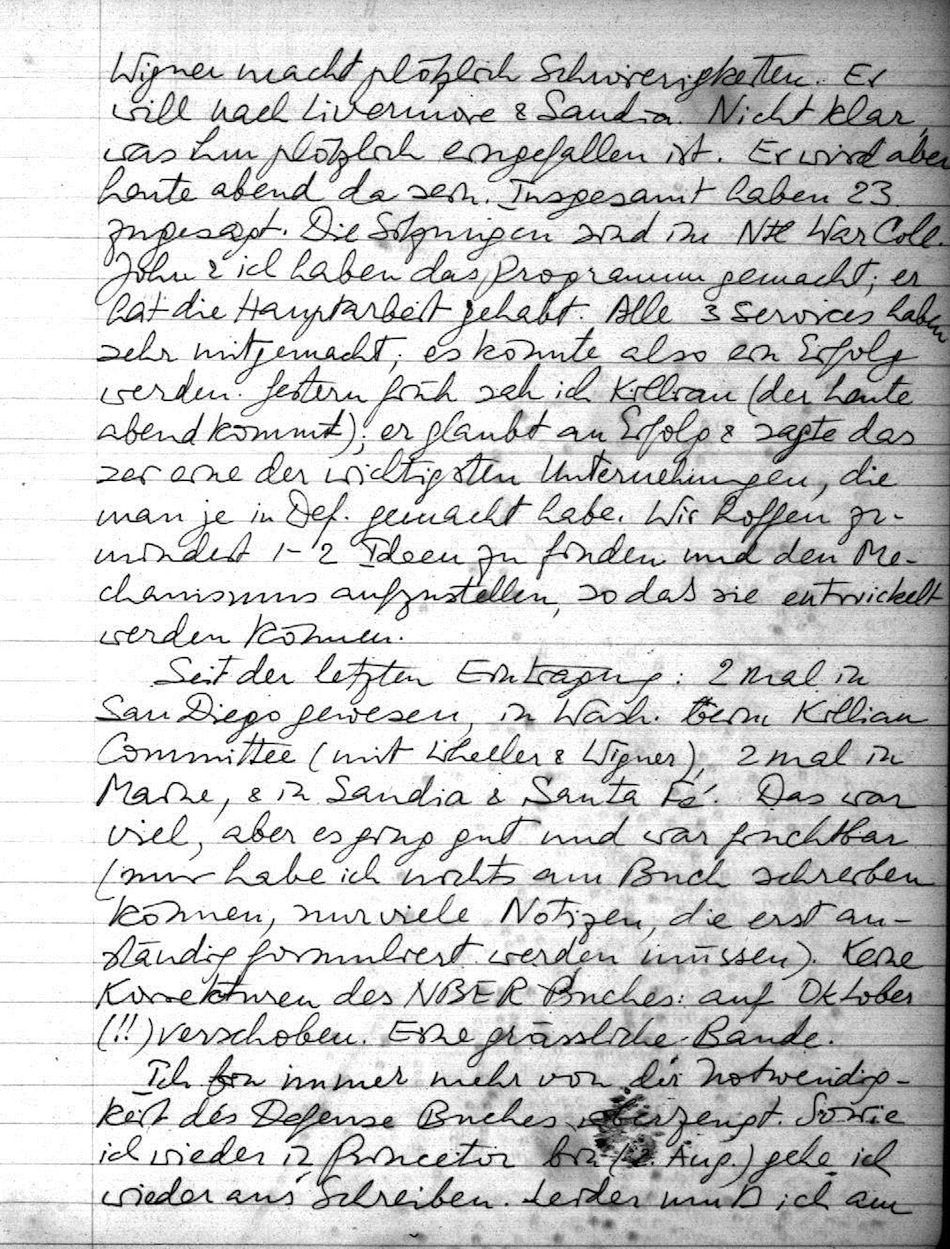 Wigner macht plötzlich Schwierigkeiten. Er
will nach Livermore & Sandia. Nicht klar,
was ihm plötzlich eingefallen ist. Er wird aber
heute abend da sein. Insgesamt haben 23
zugesagt. Die Sitzungen sind im Ntl War Coll.
John & ich haben das Programm gemacht; er
hat die Hauptarbeit gehabt. Alle 3 Services haben
sehr mitgemacht; es könnte also ein Erfolg
werden. Gestern früh sah ich Killian (der heute
abend kommt); er glaubt an Erfolg & sagte das
sei eine der wichtigsten Unternehmungen, die
man je in Def. gemacht habe. Wir hoffen zu-
mindest 1-2 Ideen zu finden und den Me-
chanismus aufzustellen, so daß sie entwickelt
werden können.
Seit der letzten Eintragung: 2 mal in
San Diego gewesen, in Wash. beim Killian
Committee (mit Wheeler & Wigner), 2 mal in
Maine, & in Sandia & Santa Fé. Das war
viel, aber es ging gut und war fruchtbar
(nur habe ich nichts am Buch schreiben
können, nur viele Notizen, die erst an-
ständig formuliert werden müssen). Keine
Korrekturen des NBER Buches: auf Oktober
(!!) verschoben. Eine grässliche Bande.
Ich bin immer mehr von der Notwendig-
keit des Defense Buches überzeugt. Sowie
ich wieder in Princeton bin ( Aug.) gehe ich
wieder ans Schreiben. Leider muß ich am